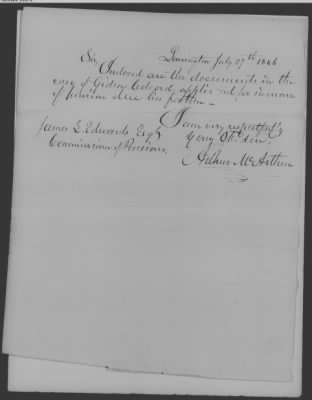 Limington July 27th 1846
Sir,
Inclosed are the documents in the
case of Gideon applicant for increase
of pension due his father—
I am very respectfully
Your Obt. Servt.
Arthur McArthur
James L. Edwards Esqr
Commissioner of Pensions.